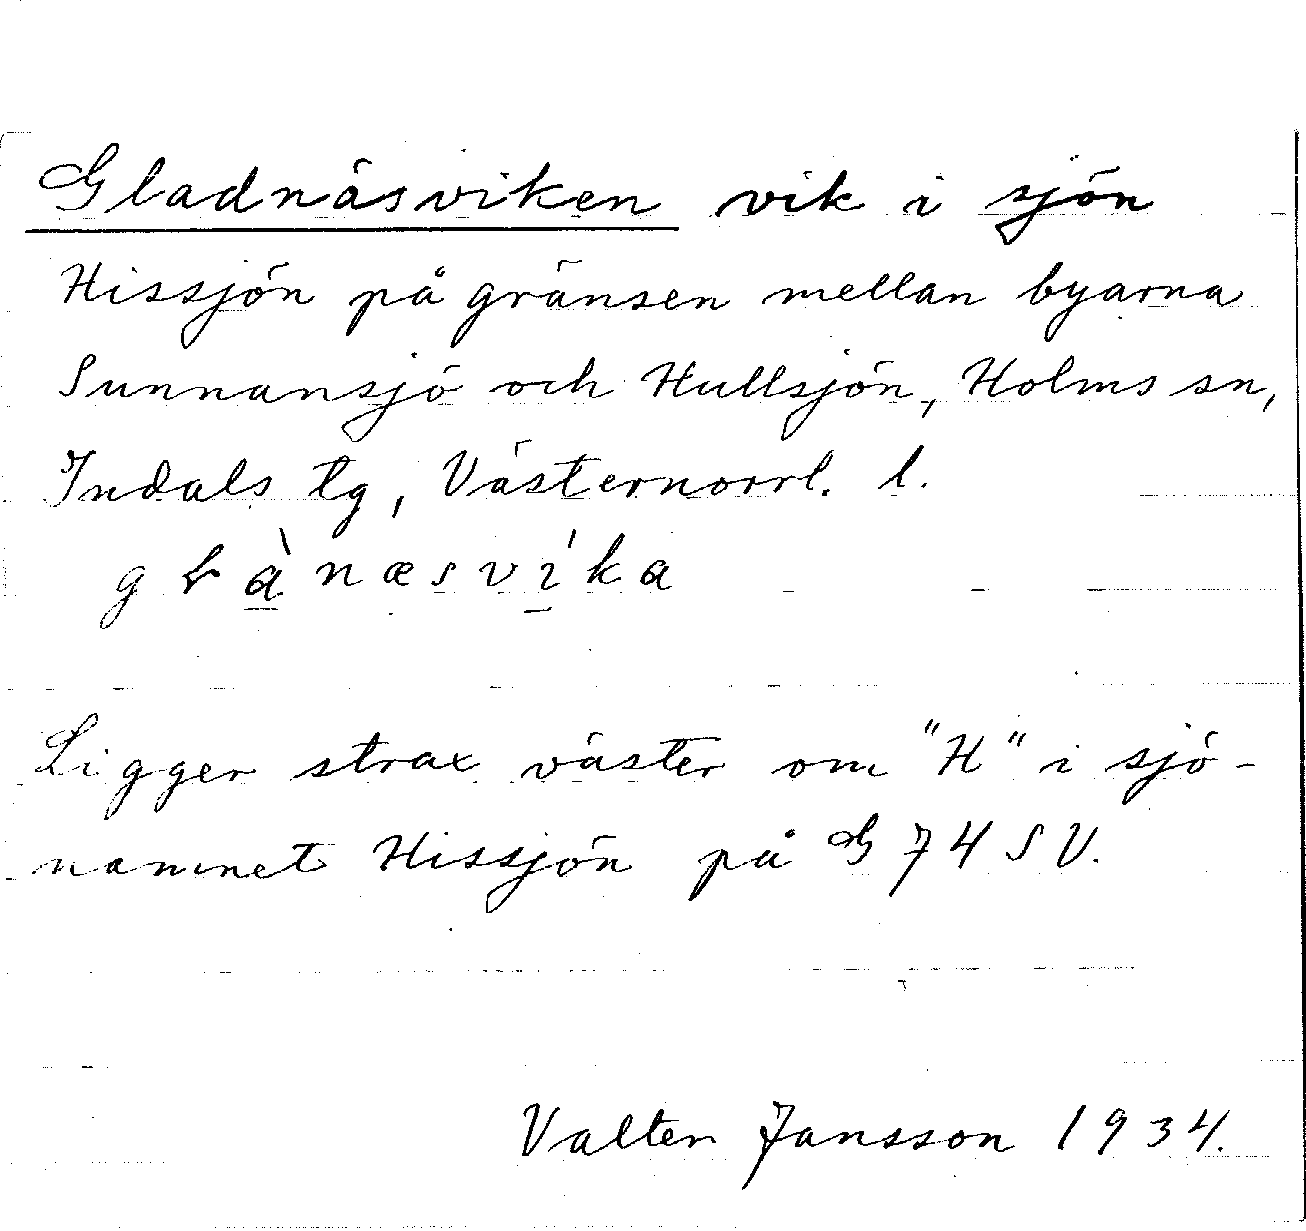 Gladnäsviken vik i sjön
Hissjön på gränsen mellan byarna
Sunnansjö och Hullsjön, Holms sn,
Indals tg, Västernorrl. l.
gɫànæsvíka
Ligger strax väster om "H" i sjö-
namnet Hissjön på G 74 SV.
Valter Jansson 1934.